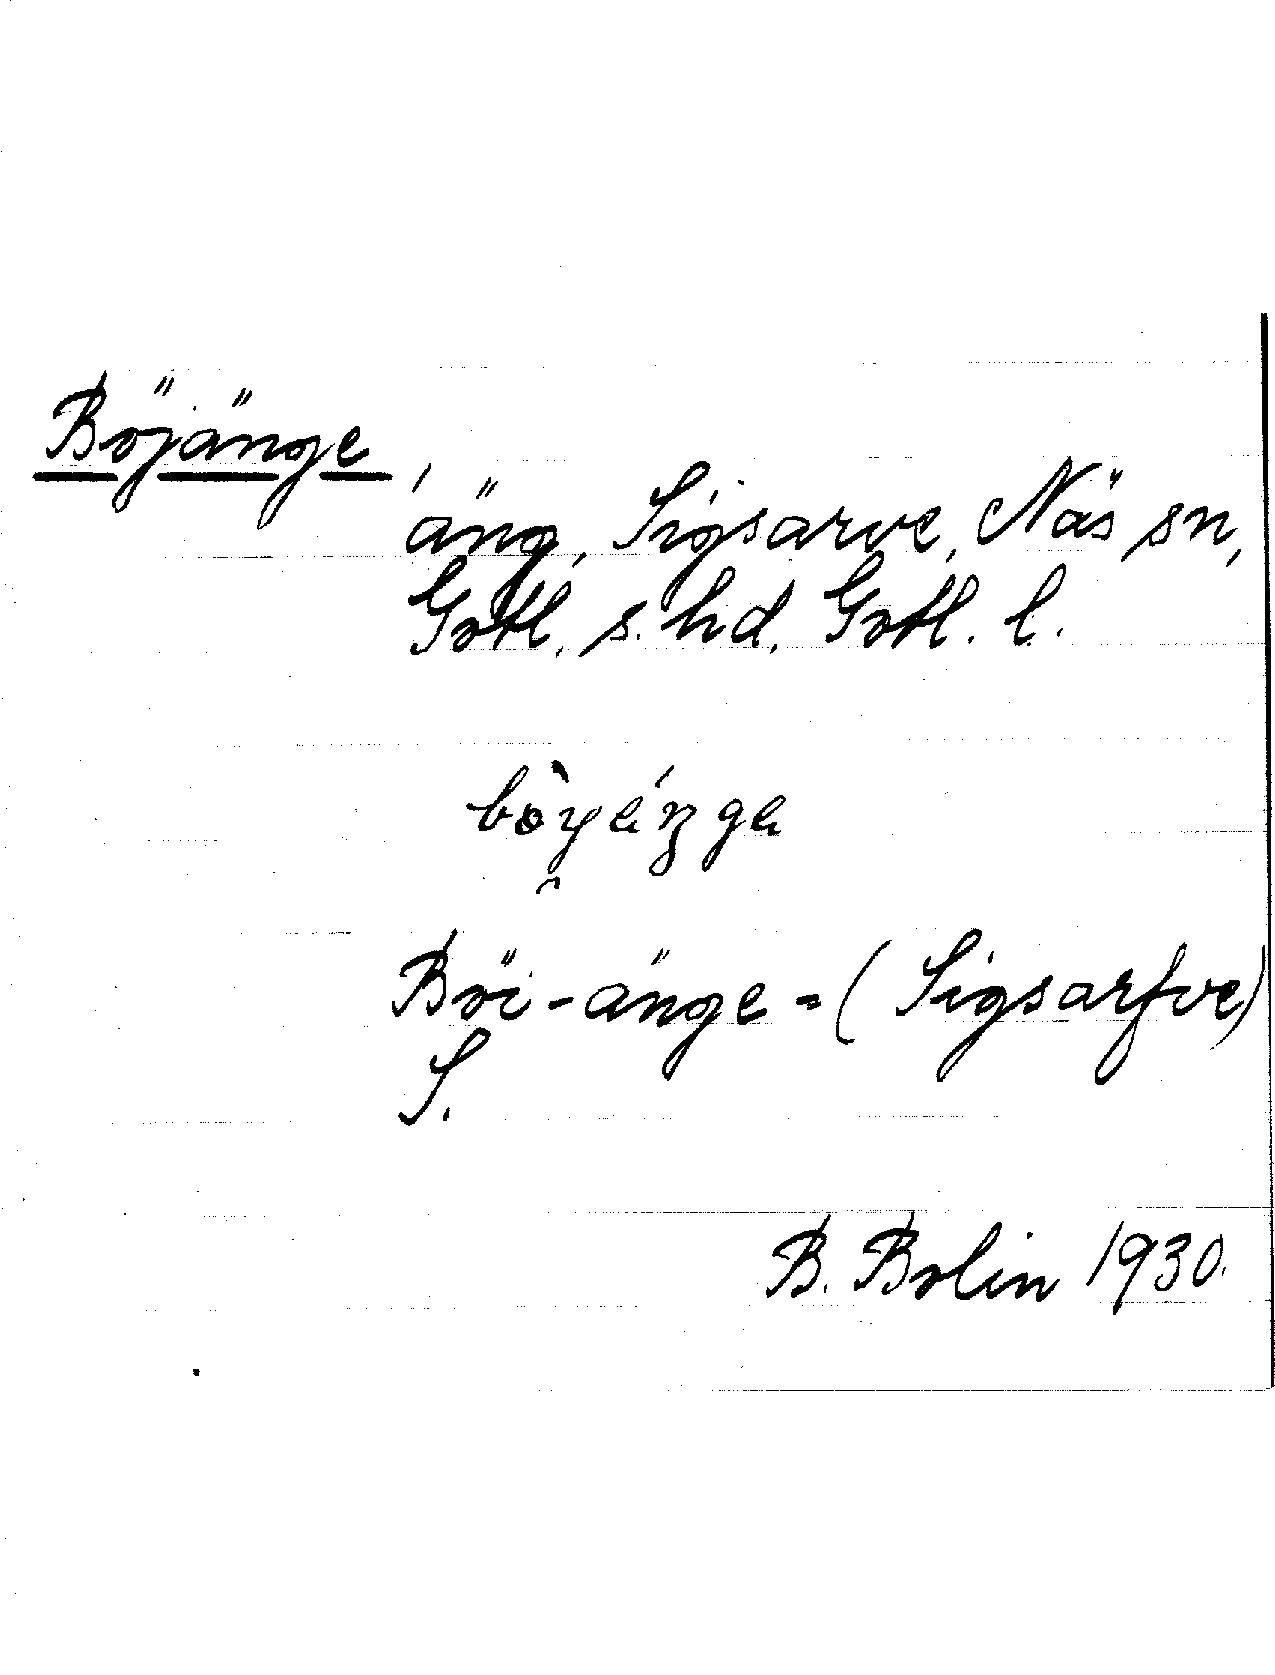 Böjänge,
äng, Sigsarve, Näs sn,
Gotl. s. hd, Gotl. l.
Böi-änge = (Sigsarfve)
S.
B. Bolin 1930.